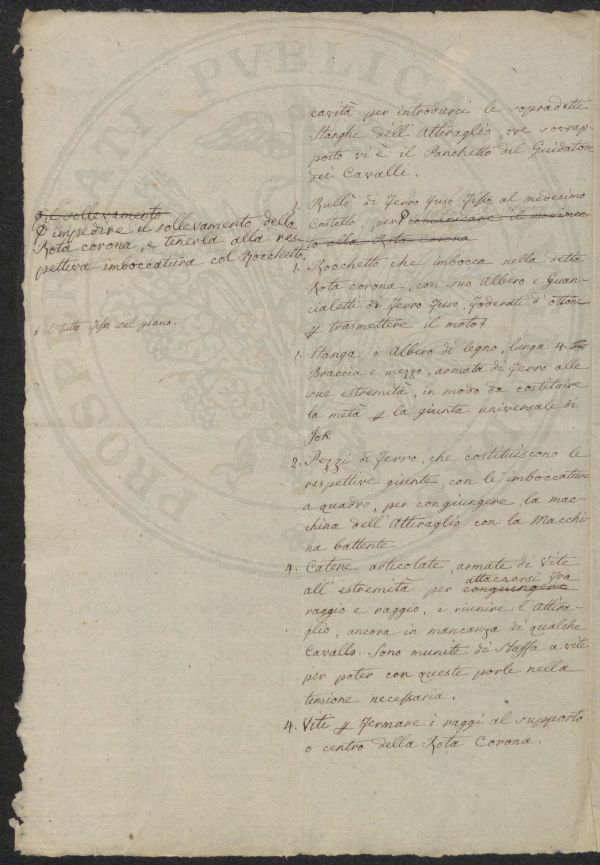 PROSPERITATI PVBLICAE
cavità per introdurci le sopradette
Stanghe dell'Attiraglio, ove sovrap-
posto vi è il Panchetto del Guidatore
dei Cavalli.
1. Rullo di ferro fuso fisso al medesimo
Castello, per comunicare il movimen
to alla Rota corona
e il sollevamento
impedire il sollevamento della
Rota corona, e tenerla alla res-
pettiva imboccatura col Rocchetto.
1. Rocchetto che imbocca nella detta
Rota corona, con suo Albero e Guan-
cialetti di ferro fuso, foderati d'ottone
p trasmettere il moto
e il tutto fisso sul piano.
1. Stanga o Albero di legno, lunga 4
Braccia e mezzo, armata di ferro alle
sue estremità, in modo da costituire
la metà p la giunta universale di
Jok
2. Pezzi di ferro, che costituiscono le
respettive giunte, con le imboccature
a quadro, per congiungere, la mac-
china dell'Attiraglio con la Macchi-
na battente
4. Catene articolate, armate di Vite
all'estremità per congiungere attaccarsi fra
raggio e raggio, e riunire l'Attira-
glio, ancora in mancanza di qualche
Cavallo. Sono munite di Staffa a vite
per poter con queste porle nella
tensione necessaria.
4. Viti p fermare i raggi al supporto
o centro della Rota Corona.